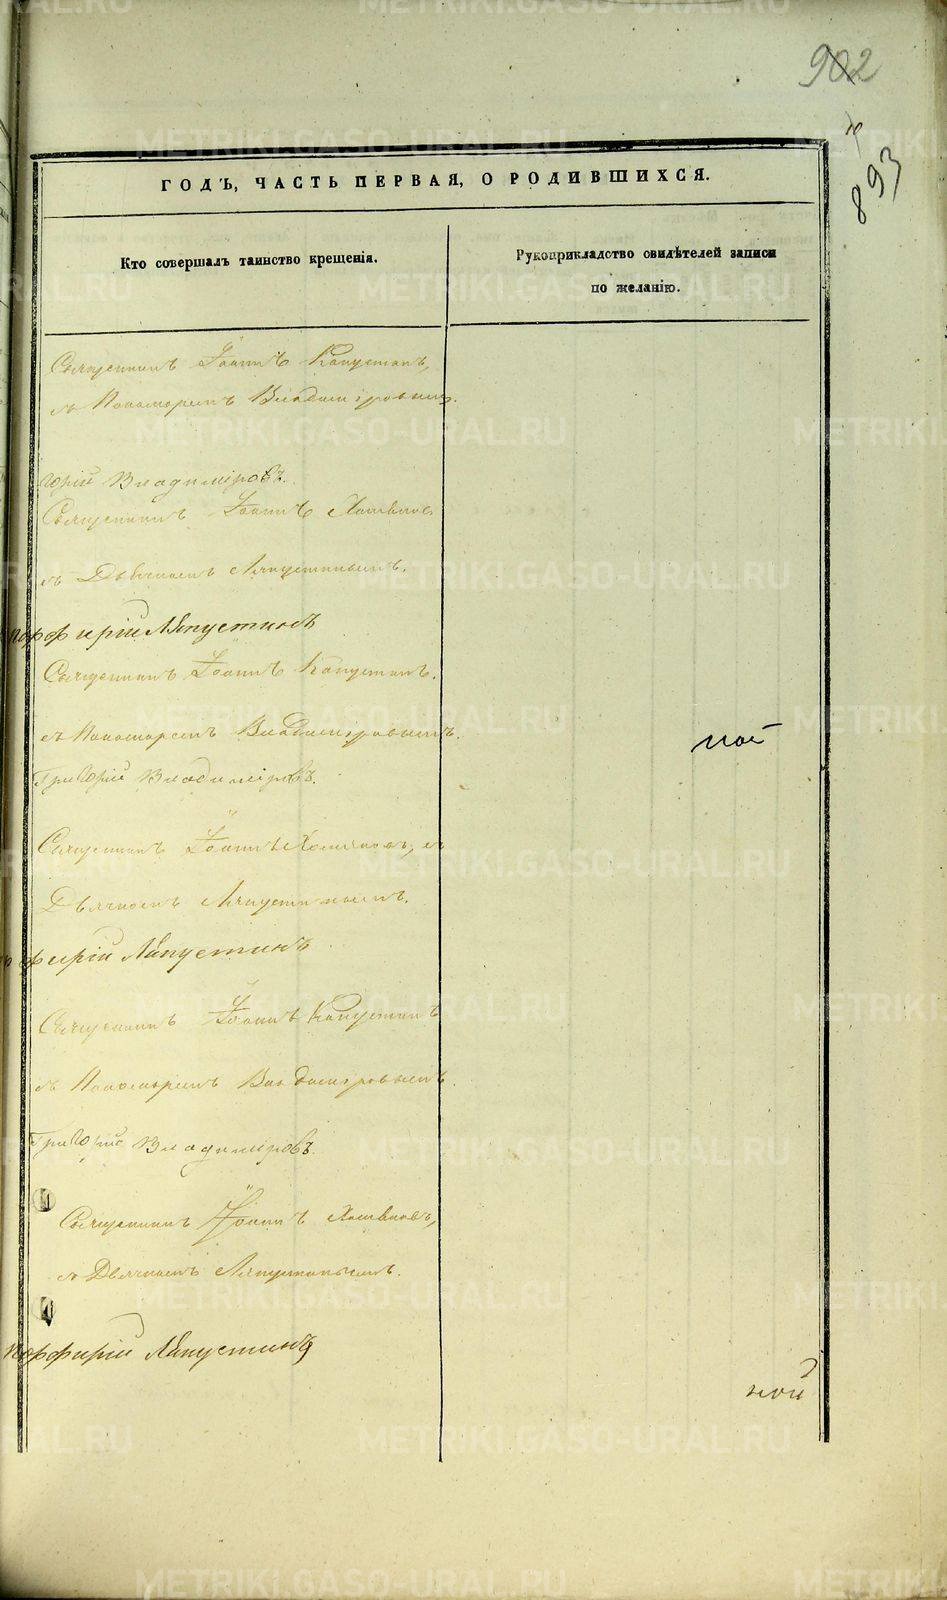 902
893
ГОДЪ, ЧАСТЬ ПЕРВАЯ, О РОДИВШИХСЯ.
Кто совершалъ таинство крещенія.
Рукоприкладство свидѣтелей записи
по желанію.
Священникъ Іоаннъ Капустинъ,
съ Пономаремъ Владиміровымъ.
Владиміровъ.
Священникъ Іоаннъ
съ Дьячкомъ Ляпустинымъ.
Порфирій Ляпустинъ
Священникъ Іоаннъ Капустинъ.
съ Пономаремъ Владиміровымъ.
Григорій Владиміровъ.
Священникъ Іоаннъ съ
Дьячкомъ Ляпустинымъ.
Ляпустинъ
Священникъ Іоаннъ Капустинъ
съ Пономаремъ Владиміровымъ.
Григорій Владиміровъ.
Священникъ Іоаннъ
съ Дьячкомъ Ляпустинымъ.
Порфирій Ляпустинъ
ной
METRIKI.GASO-URAL.RU